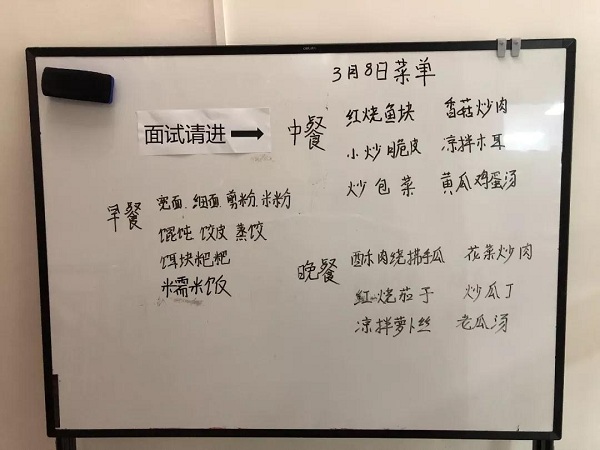 3月8日菜单
面试请进
中餐
红烧鱼块 香菇炒肉
小炒脆皮 凉拌木耳
炒包菜 黄瓜鸡蛋汤
早餐
宽面.细面.剪粉.米粉
馄饨 饺皮 蒸饺
饵块粑粑
糯米饭
晚餐
酥肉烧佛手瓜 花菜炒肉
红烧茄子 炒瓜丁
凉拌萝卜丝 老瓜汤